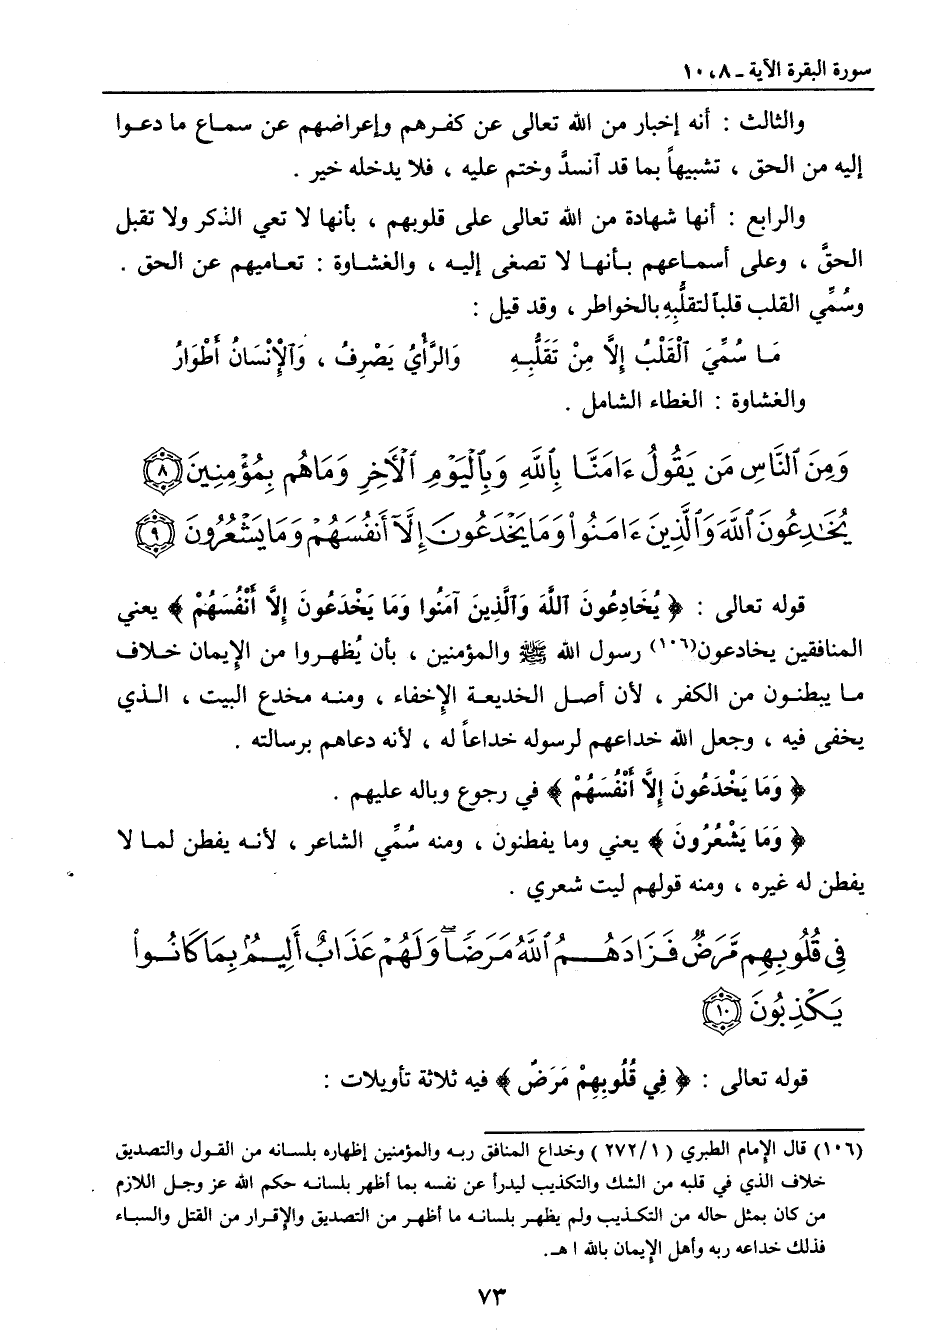 سورة البقرة الآية ـ ٨، ١٠
والثالث : أنه إخبار من الله تعالى عن كفرهم وإعراضهم عن سماع ما دعوا
إليه من الحق ، تشبيهاً بما قد ٱنسدَّ وختم عليه ، فلا يدخله خير .
والرابع : أنها شهادة من الله تعالى على قلوبهم ، بأنها لا تعي الذكر ولا تقبل
الحقَّ ، وعلى أسماعهم بأنها لا تصغى إليه ، والغشاوة : تعاميهم عن الحق .
وسُمِّي القلب قلباً لتقلُّبِهِ بالخواطر ، وقد قيل :
مَا سُمِّيَ ٱلْقَلْبُ إِلَّا مِنْ تَقَلُّبِهِ وَالرَّأْيُ يَصْرِفُ ، وَٱلْإِنْسَانُ أَطْوَارُ
والغشاوة : الغطاء الشامل .
وَمِنَ ٱلنَّاسِ مَن يَقُولُ ءَامَنَّا بِٱللَّهِ وَبِٱلْيَوْمِ ٱلْآخِرِ وَمَاهُم بِمُؤْمِنِينَ ٨
يُخَٰدِعُونَ ٱللَّهَ وَٱلَّذِينَ ءَامَنُوا۟ وَمَا يَخْدَعُونَ إِلَّآ أَنفُسَهُمْ وَمَا يَشْعُرُونَ ٩
قوله تعالى : ﴿ يُخَادِعُونَ ٱللَّهَ وَٱلَّذِينَ آمَنُوا وَمَا يَخْدَعُونَ إِلَّا أَنْفُسَهُمْ ﴾ يعني
المنافقين يخادعون(١٠٦) رسول الله ﷺ والمؤمنين ، بأن يُظهروا من الإيمان خلاف
ما يبطنون من الكفر ، لأن أصل الخديعة الإخفاء ، ومنه مخدع البيت ، الذي
يخفى فيه ، وجعل الله خداعهم لرسوله خداعاً له ، لأنه دعاهم برسالته .
﴿ وَمَا يَخْدَعُونَ إِلَّا أَنْفُسَهُمْ ﴾ في رجوع وباله عليهم .
﴿ وَمَا يَشْعُرُونَ ﴾ يعني وما يفطنون ، ومنه سُمِّي الشاعر ، لأنه يفطن لما لا
يفطن له غيره ، ومنه قولهم ليت شعري .
فِى قُلُوبِهِم مَّرَضٌ فَزَادَهُمُ ٱللَّهُ مَرَضًا ۖ وَلَهُمْ عَذَابٌ أَلِيمٌۢ بِمَا كَانُوا۟
يَكْذِبُونَ ١٠
قوله تعالى : ﴿ فِي قُلُوبِهِمْ مَرَضٌ ﴾ فيه ثلاثة تأويلات :
(١٠٦) قال الإمام الطبري ( ١/٢٧٢ ) وخداع المنافق ربه والمؤمنين إظهاره بلسانه من القول والتصديق
خلاف الذي في قلبه من الشك والتكذيب ليدرأ عن نفسه بما أظهر بلسانه حكم الله عز وجل اللازم
من كان بمثل حاله من التكذيب ولم يظهر بلسانه ما أظهر من التصديق والإقرار من القتل والسباء
فذلك خداعه ربه وأهل الإيمان بالله ا هـ.
٧٣